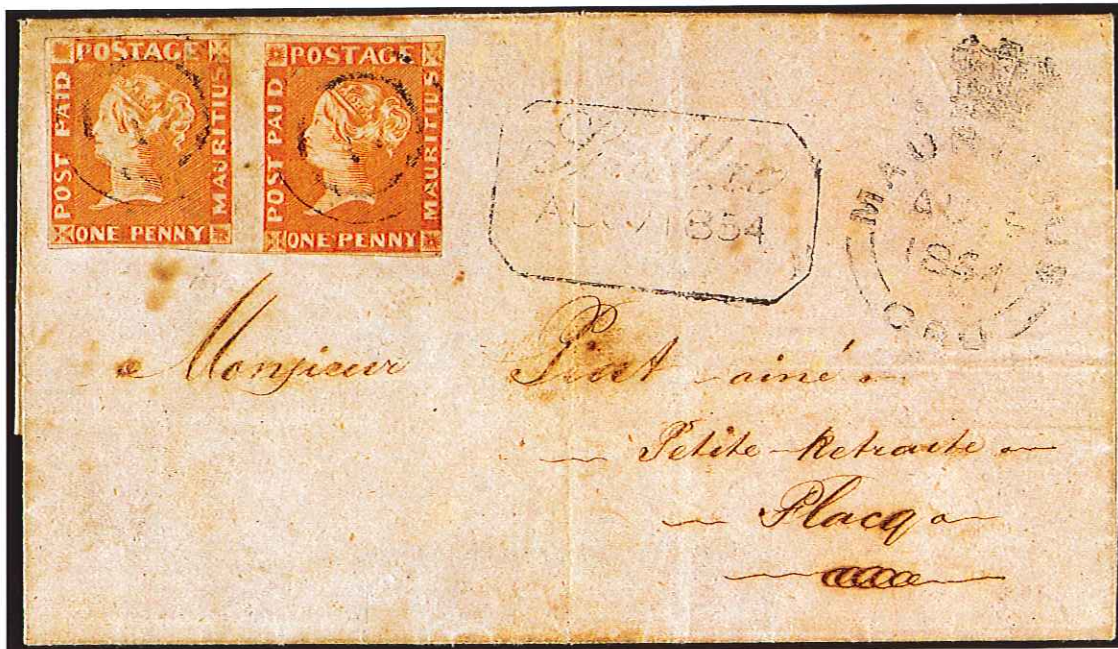 POSTAGE
POST PAID
MAURITIUS
ONE PENNY
POSTAGE
POST PAID
MAURITIUS
ONE PENNY
1854
MAURITIUS
1854
Monsieur Piat ainé
Petite Retraite
Flacq